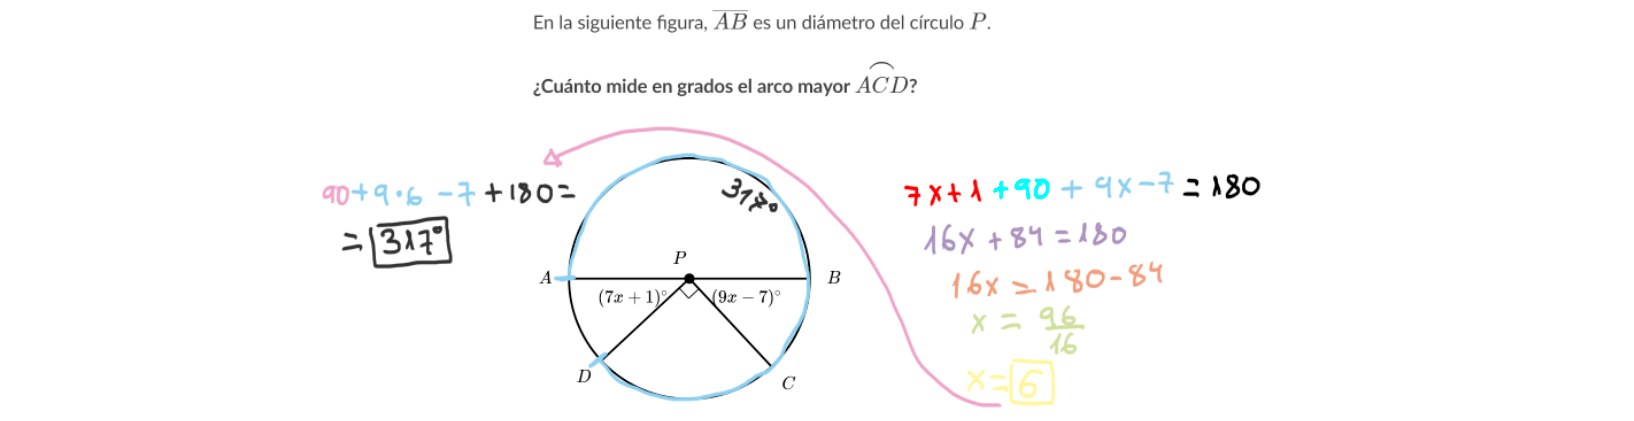 En la siguiente figura, AB es un diámetro del círculo P.
¿Cuánto mide en grados el arco mayor ACD?
90+9·6-7+180=
=317°
317°
P
A
B
(7x + 1)°
(9x − 7)°
D
C
7x+1+90+9x-7=180
16x+84=180
16x=180-84
x=96/16
x=6